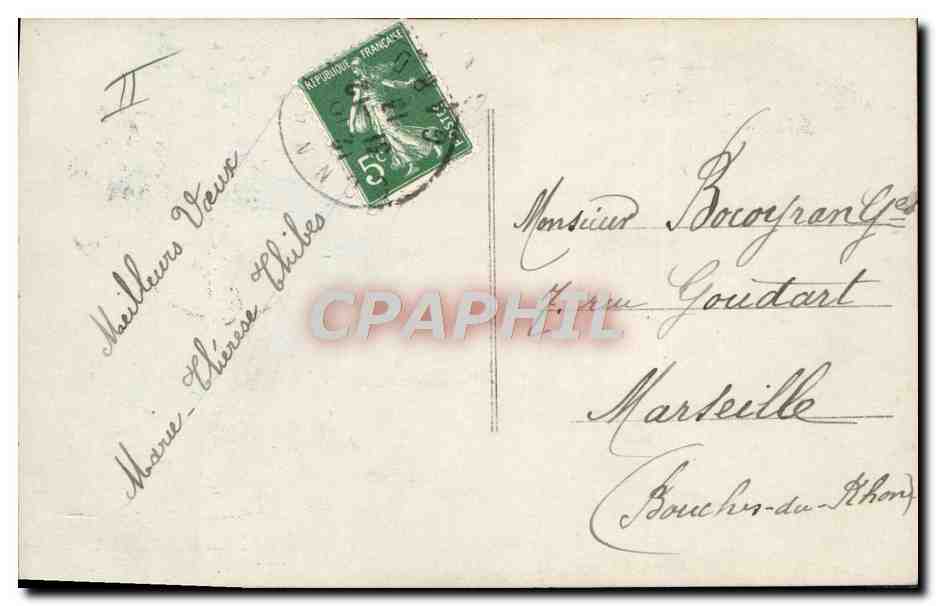 II
Meilleurs Vœux
Marie-Thérèse Thibes
RÉPUBLIQUE FRANÇAISE
POSTES
5c
CPAPHIL
Monsieur Bocoyran Ges
7. rue Goudart
Marseille
(Bouches-du-Rhone)